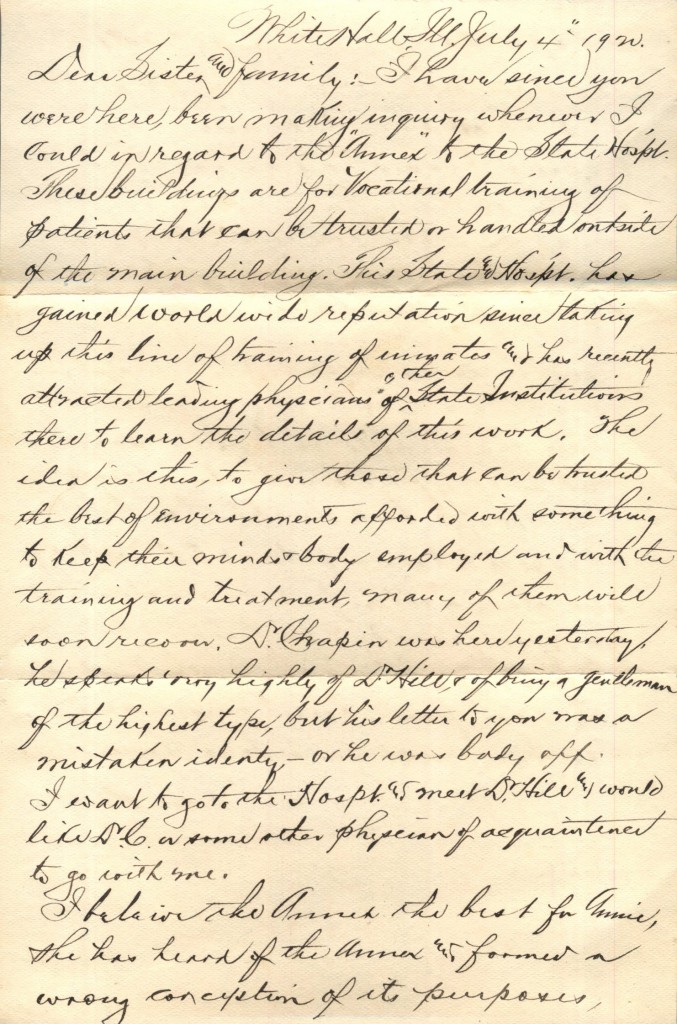 White Hall, Ill, July 4" 1920.
Dear Sister and family:- I have since you
were here, been making inquiry whenever I
could in regard to the "Annex" to the State Hospt.
These buildings are for Vocational training of
patients that can be trusted or handled outside
of the main building. This State Hospt. has
gained world wide reputation since taking
up this line of training of inmates and has recently
attracted leading physicians of other State Institutions
there to learn the details of this work. The
idea is this, to give those that can be trusted
the best of environments afforded with something
to keep their minds & body employed and with the
training and treatment, many of them will
soon recover. Dr. Chapin was here yesterday,
he speaks very highly of Dr Hill, & of being a gentleman
of the highest type, but his letter to you was a
mistaken identy - or he was body off.
I want to go to the Hospt. and meet Dr Hill and would
like Dr. C. or some other physician of acquaintence
to go with me.
I beleive the Annex the best for Annie,
she has heard of the Annex and formed a
wrong conception of its purposes,